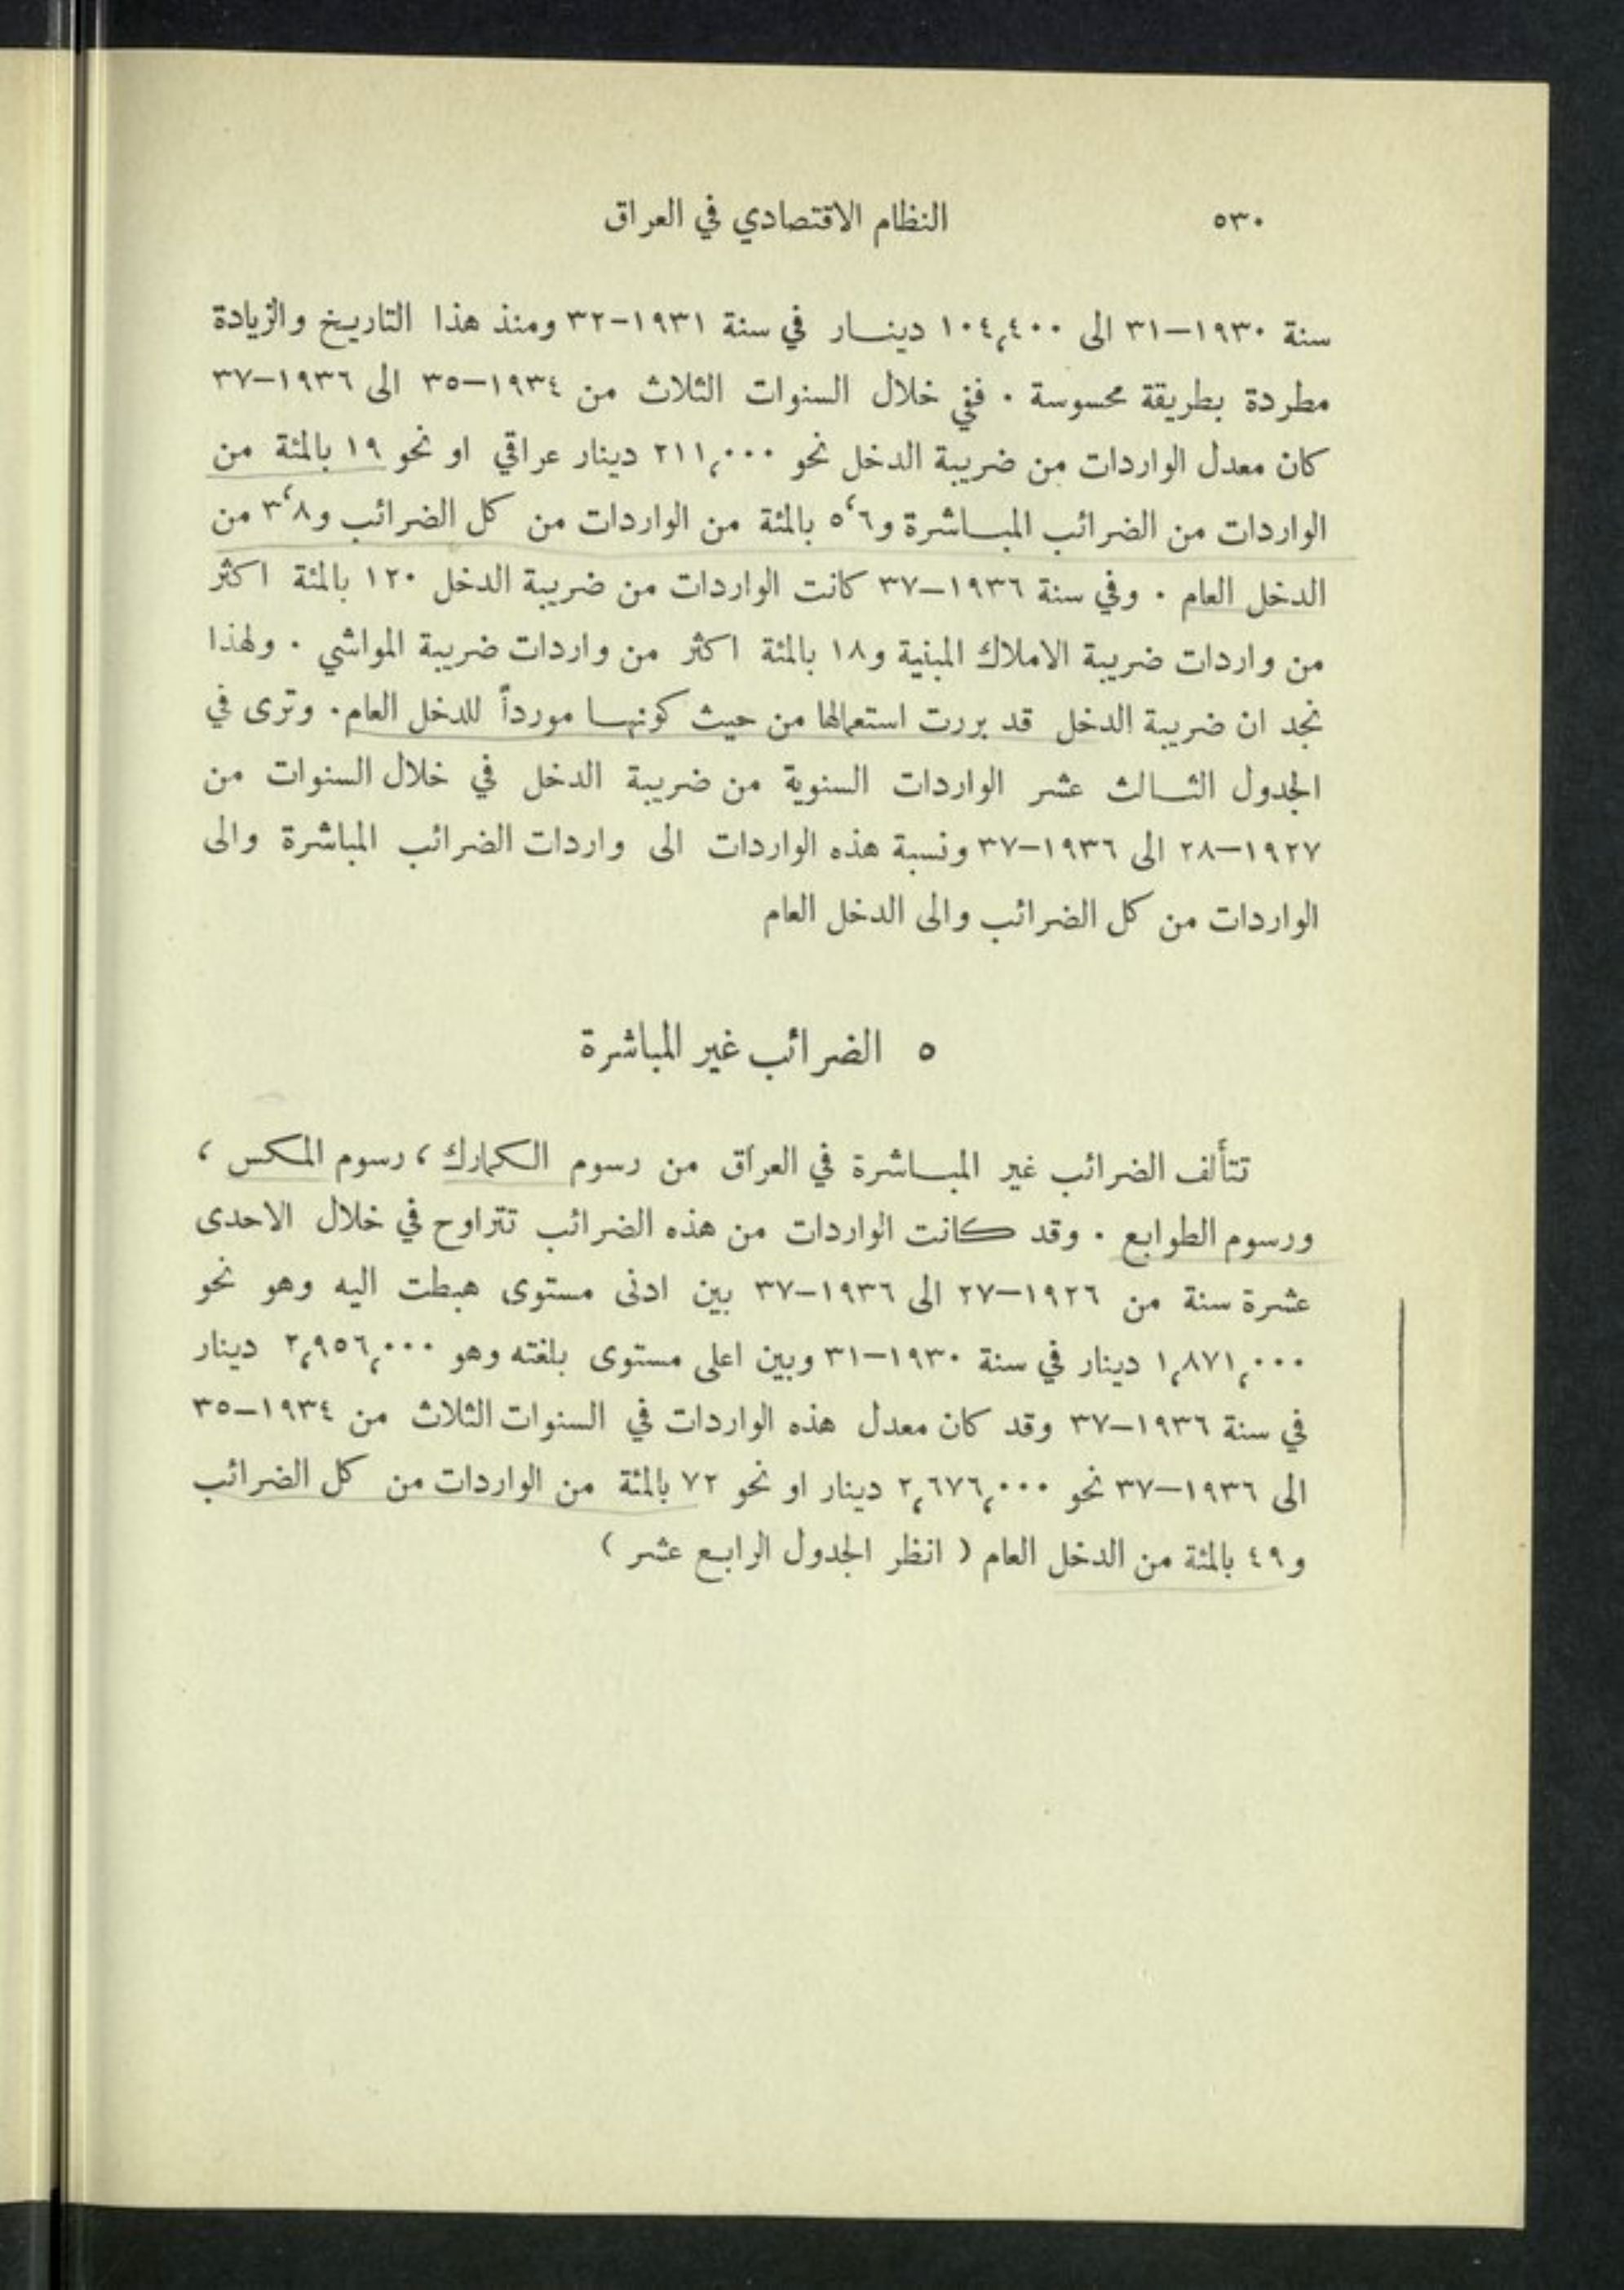 ٥٣٠ النظام الاقتصادي في العراق
سنة ١٩٣٠–٣١ الى ١٠٤,٤٠٠ دينـــار في سنة ١٩٣١–٣٢ ومنذ هذا التاريخ والزيادة
مطردة بطريقة محسوسة . ففي خلال السنوات الثلاث من ١٩٣٤–٣٥ الى ١٩٣٦–٣٧
كان معدل الواردات من ضريبة الدخل نحو ٢١١,٠٠٠ دينار عراقي او نحو ١٩ بالمئة من
الواردات من الضرائب المبـــاشرة و٥‘٦ بالمئة من الواردات من كل الضرائب و٣‘٨ من
الدخل العام . وفي سنة ١٩٣٦–٣٧ كانت الواردات من ضريبة الدخل ١٢٠ بالمئة اكثر
من واردات ضريبة الاملاك المبنية و١٨ بالمئة اكثر من واردات ضريبة المواشي . ولهذا
نجد ان ضريبة الدخل قد بررت استعمالها من حيث كونهـــا مورداً للدخل العام. وترى في
الجدول الثـــالث عشر الواردات السنوية من ضريبة الدخل في خلال السنوات من
١٩٢٧–٢٨ الى ١٩٣٦–٣٧ ونسبة هذه الواردات الى واردات الضرائب المباشرة والى
الواردات من كل الضرائب والى الدخل العام
٥ الضرائب غير المباشرة
تتألف الضرائب غير المبـــاشرة في العراق من رسوم الكمارك ، رسوم المكس ،
ورسوم الطوابع . وقد كانت الواردات من هذه الضرائب تتراوح في خلال الاحدى
عشرة سنة من ١٩٢٦–٢٧ الى ١٩٣٦–٣٧ بين ادنى مستوى هبطت اليه وهو نحو
١,٨٧١,٠٠٠ دينار في سنة ١٩٣٠–٣١ وبين اعلى مستوى بلغته وهو ٢,٩٥٦,٠٠٠ دينار
في سنة ١٩٣٦–٣٧ وقد كان معدل هذه الواردات في السنوات الثلاث من ١٩٣٤–٣٥
الى ١٩٣٦–٣٧ نحو ٢,٦٧٦,٠٠٠ دينار او نحو ٧٢ بالمئة من الواردات من كل الضرائب
و٤٩ بالمئة من الدخل العام ( انظر الجدول الرابع عشر )